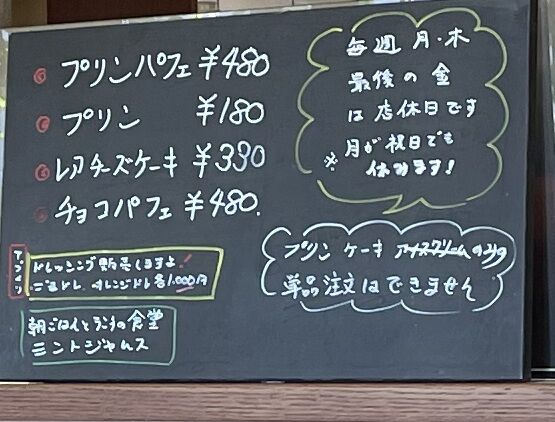 プリンパフェ ¥480
プリン ¥180
レアチーズケーキ ¥330
チョコパフェ ¥480.
毎週 月・木
最後の金
は店休日です
※月が祝日でも
休みます!
プリン ケーキ アイスクリームのみの
単品注文はできません
テイクアウト
ドレッシング販売しますよ!
ごまドレ オレンジドレ 各1,000円
朝ごはんとランチの食堂
ミントジャムス